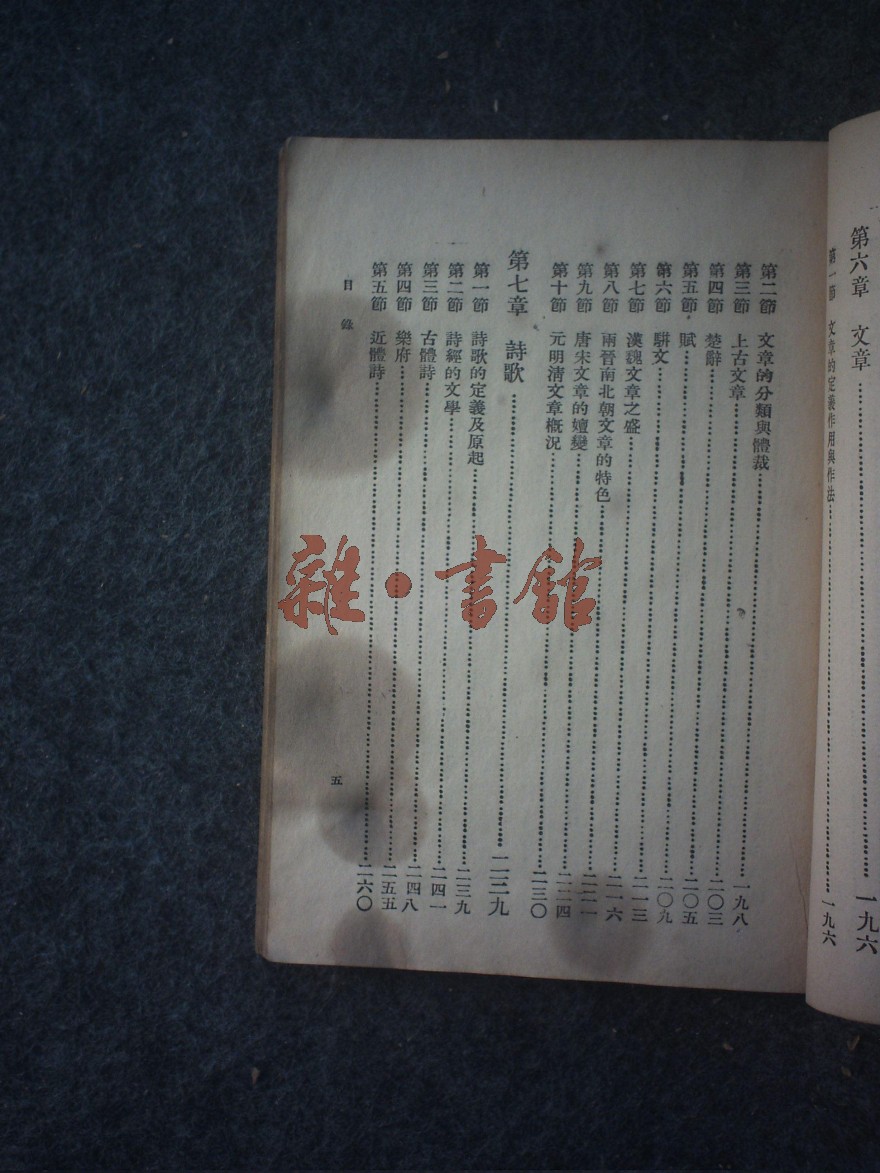 第六章 文章……一九六
第一節 文章的定義作用與作法……一九六
第二節 文章的分類與體裁……一九八
第三節 上古文章……二〇三
第四節 楚辭……二〇五
第五節 賦……二〇九
第六節 駢文……二一三
第七節 漢魏文章之盛……二一六
第八節 兩晉南北朝文章的特色……二二一
第九節 唐宋文章的嬗變……二二四
第十節 元明清文章概況……二三〇
第七章 詩歌……二三九
第一節 詩歌的定義及原起……二三九
第二節 詩經的文學……二四一
第三節 古體詩……二四八
第四節 樂府……二五五
第五節 近體詩……二六〇
目錄
五
雜·書館